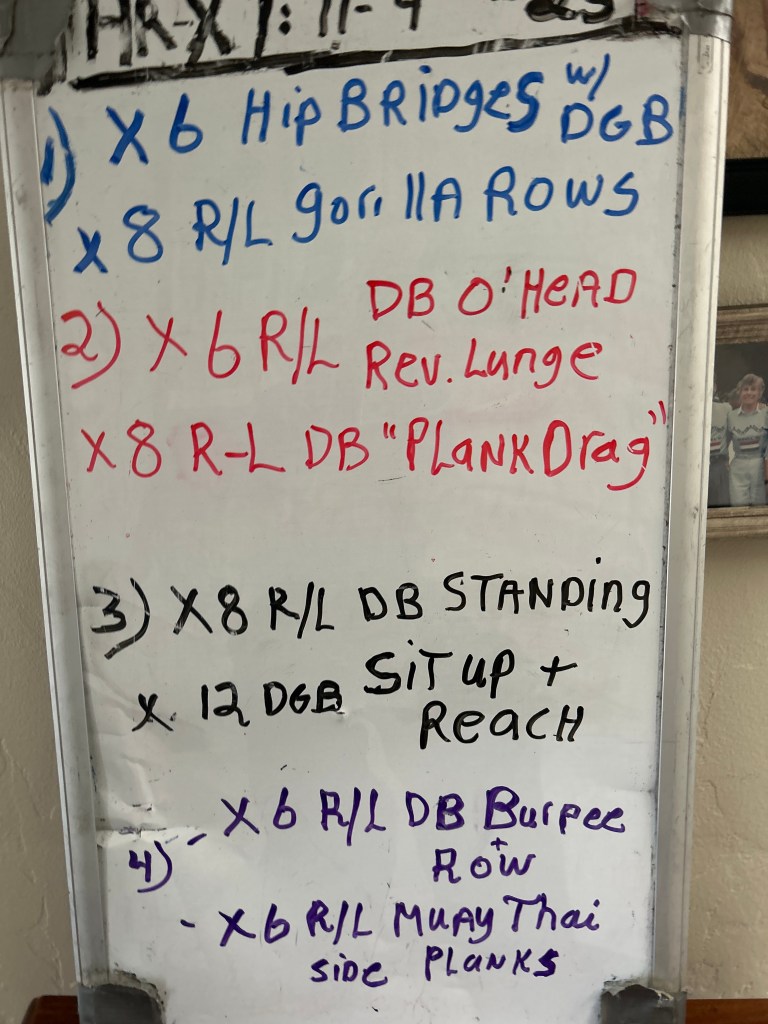 HR-X 1: 11-9
1) X 6 Hip BRiDges w/ DGB
x 8 R/L gorillA ROWS
2) X 6 R/L DB O'HeAD
Rev. Lunge
X 8 R-L DB "PLaNK Drag"
3) X8 R/L DB STANDing
X. 12 DGB SiT up +
ReacH
4) - X 6 R/L DB Burpee
+
Row
- X 6 R/L MuAy Thai
siDe PLaNKs